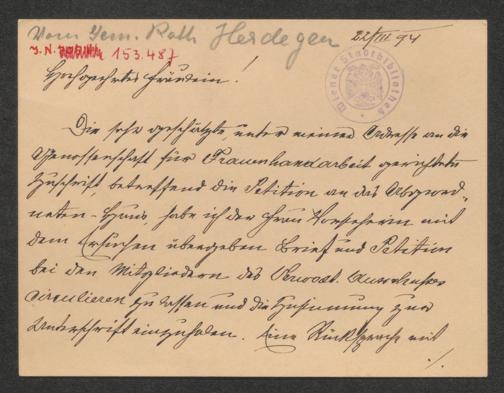 Vom Gem. Rath Herdegen
22/III 94
J. N. 153.487
Wiener Stadtbibliothek
Hochgeehrtes Fräulein!
Die sehr geschätzte unter meiner Adresse an die
Genossenschaft für Frauenhandarbeit gerichtete
Zuschrift, betreffend die Petition an das Abgeord„
neten-Haus, habe ich der Frau Vorsteherin mit
dem Ersuchen übergeben Brief und Petition
bei den Mitgliedern des Ausschusses
circulieren zu lassen und die Zustimmung zur
Unterschrift einzuholen. Eine Rücksprache mit
./.